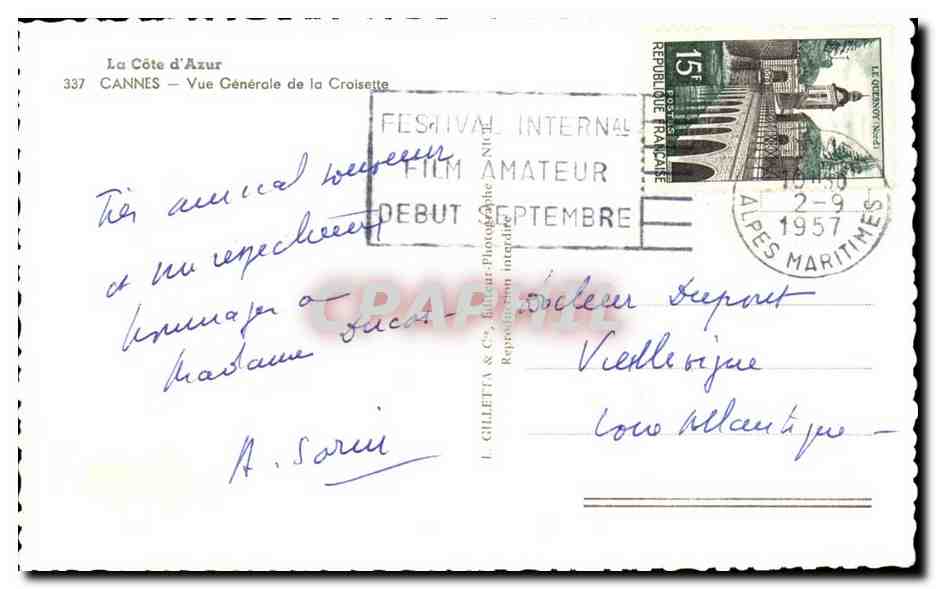 La Côte d'Azur
337 CANNES — Vue Générale de la Croisette
FESTIVAL INTERNAL
FILM AMATEUR
DEBUT SEPTEMBRE
15F
POSTES
REPUBLIQUE FRANÇAISE
LE QUESNOY (Nord)
2-9
1957
ALPES MARITIMES
Très amical souvenir
et mes respectueux
hommages à
Madame
A. Sorin
J. GILLETTA & Cie, Editeur-Photographe, NICE
Reproduction interdite
CPAPHIL
Docteur Dupont
Vieillevigne
Loire Atlantique —